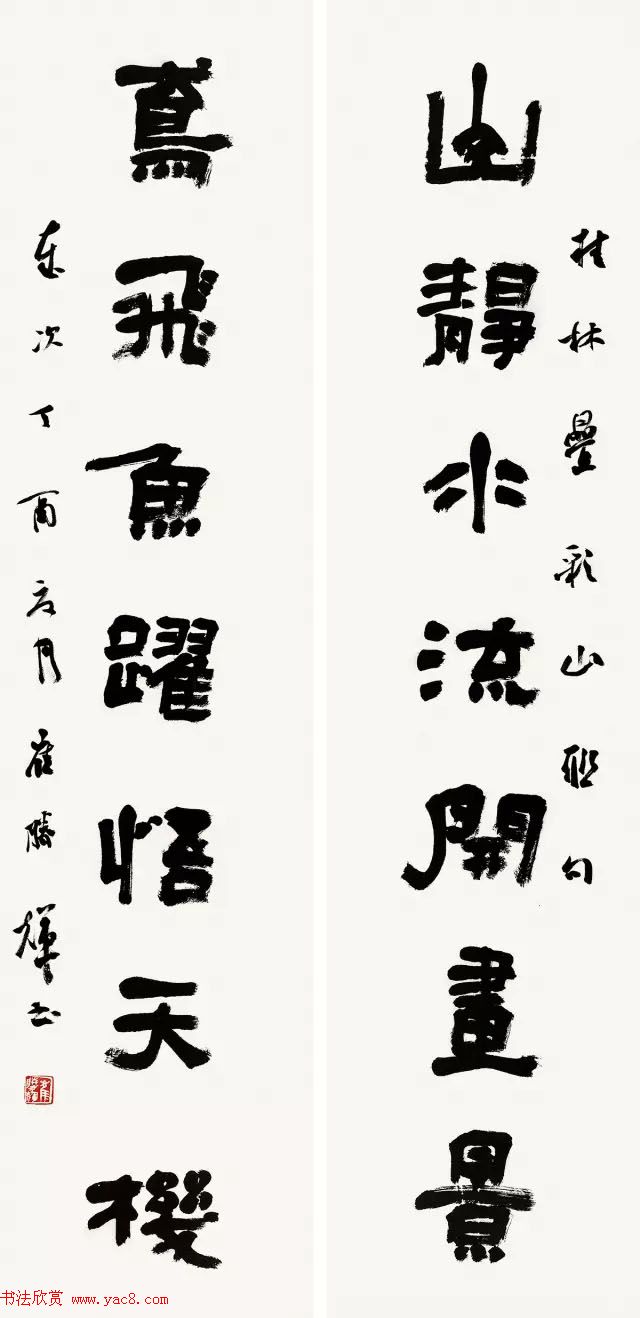 桂林疊彩山聯句
山靜水流開畫景
鳶飛魚躍悟天機
歲次丁酉夏月崔勝輝書
书法欣赏 www.yac8.com